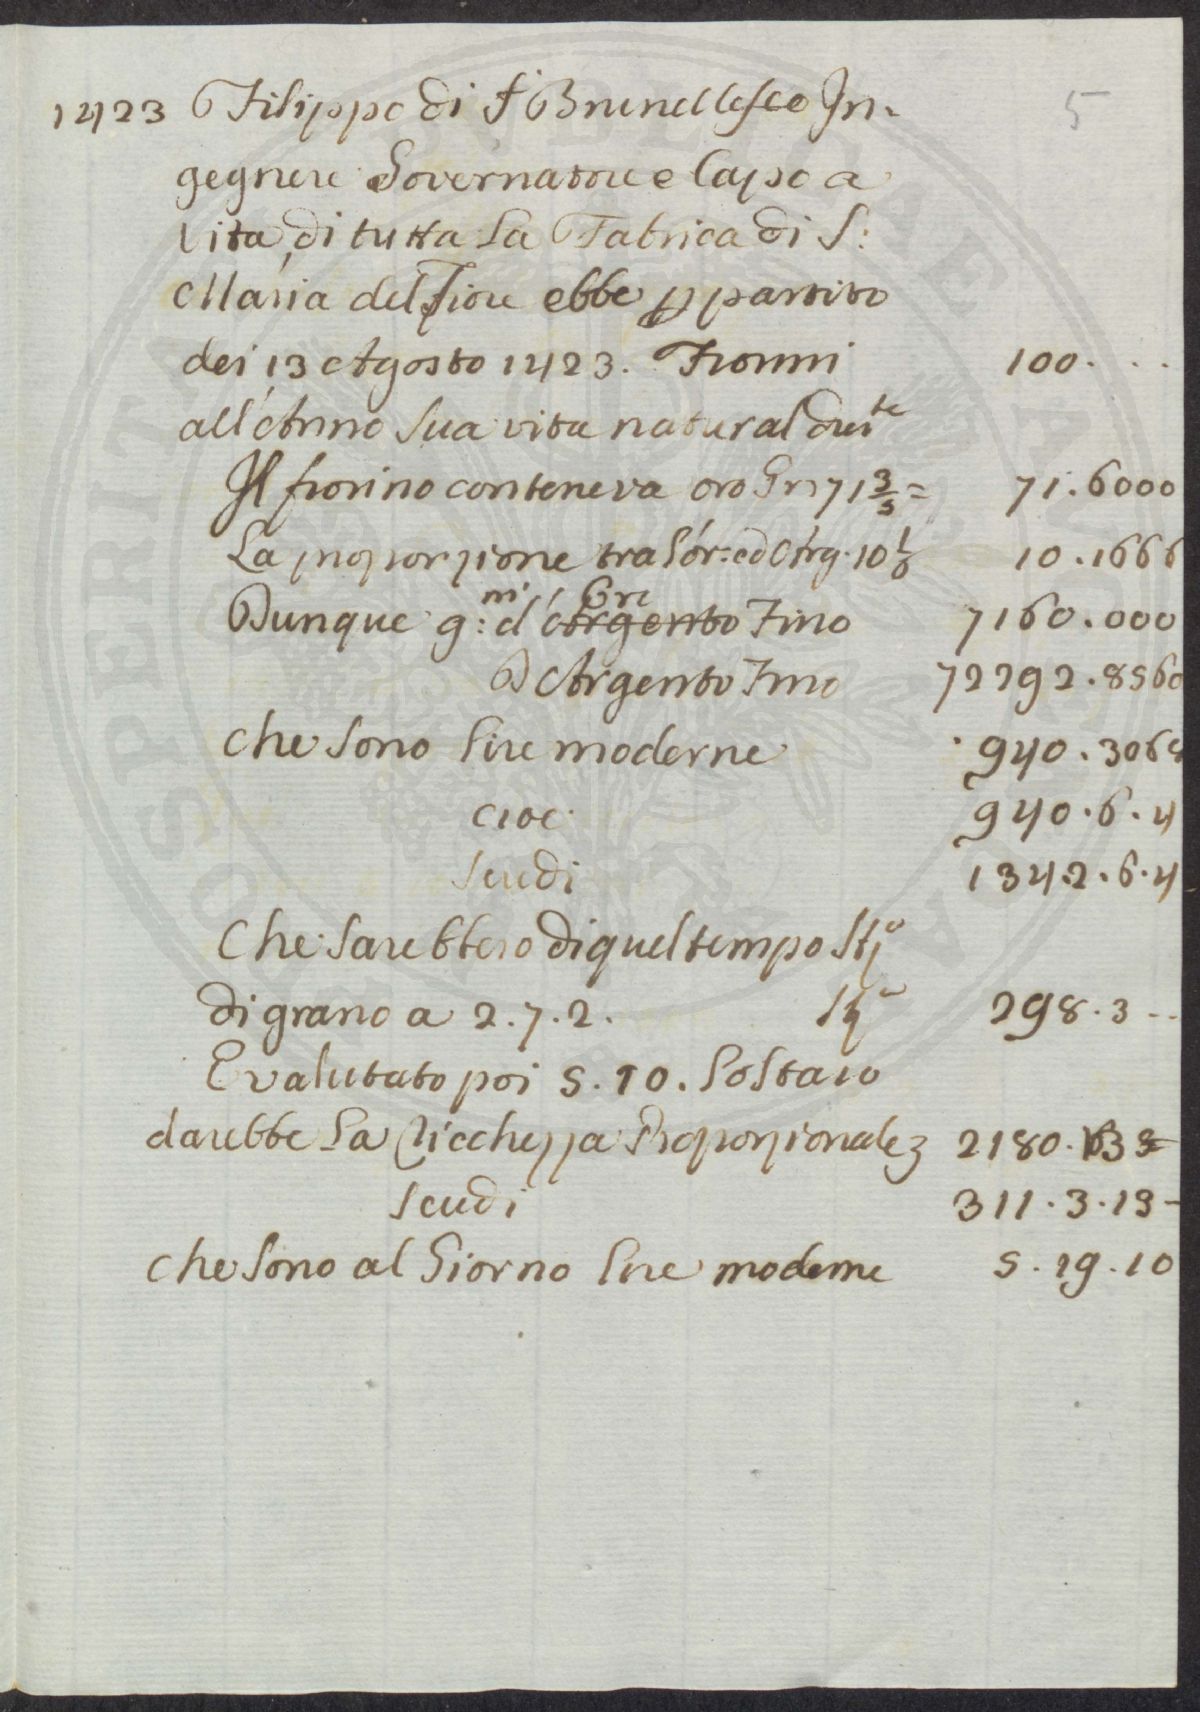 5
1423 Filippo di S. Brunellesco In-
gegnere Governatore e Capo a
vita di tutta la Fabrica di S:
Maria del Fiore ebbe p partito
dei 13 Agosto 1423. Fiorini 100. . .
all'Anno sua vita natural dur.te
Il fiorino conteneva oro Gri 71 3/5 = 71.6000
La proporzione tra l'or: ed Arg. 10 1/6 10.1666
Dunque g:ni d'Argento Oro Fino 7160.000
D'Argento Fino 72792.8560
che sono Lire moderne 940.306
cioe 940.6.4
Scudi 134.2.6.4
Che sarebbero di quel tempo
di grano a 2.7.2. 298.3 --
Evalutato poi 5.10. Lo Staio
darebbe La Ricchezza Proporzionale 2180.
Scudi 311.3.13-
che sono al Giorno Lire moderne 5.19.10